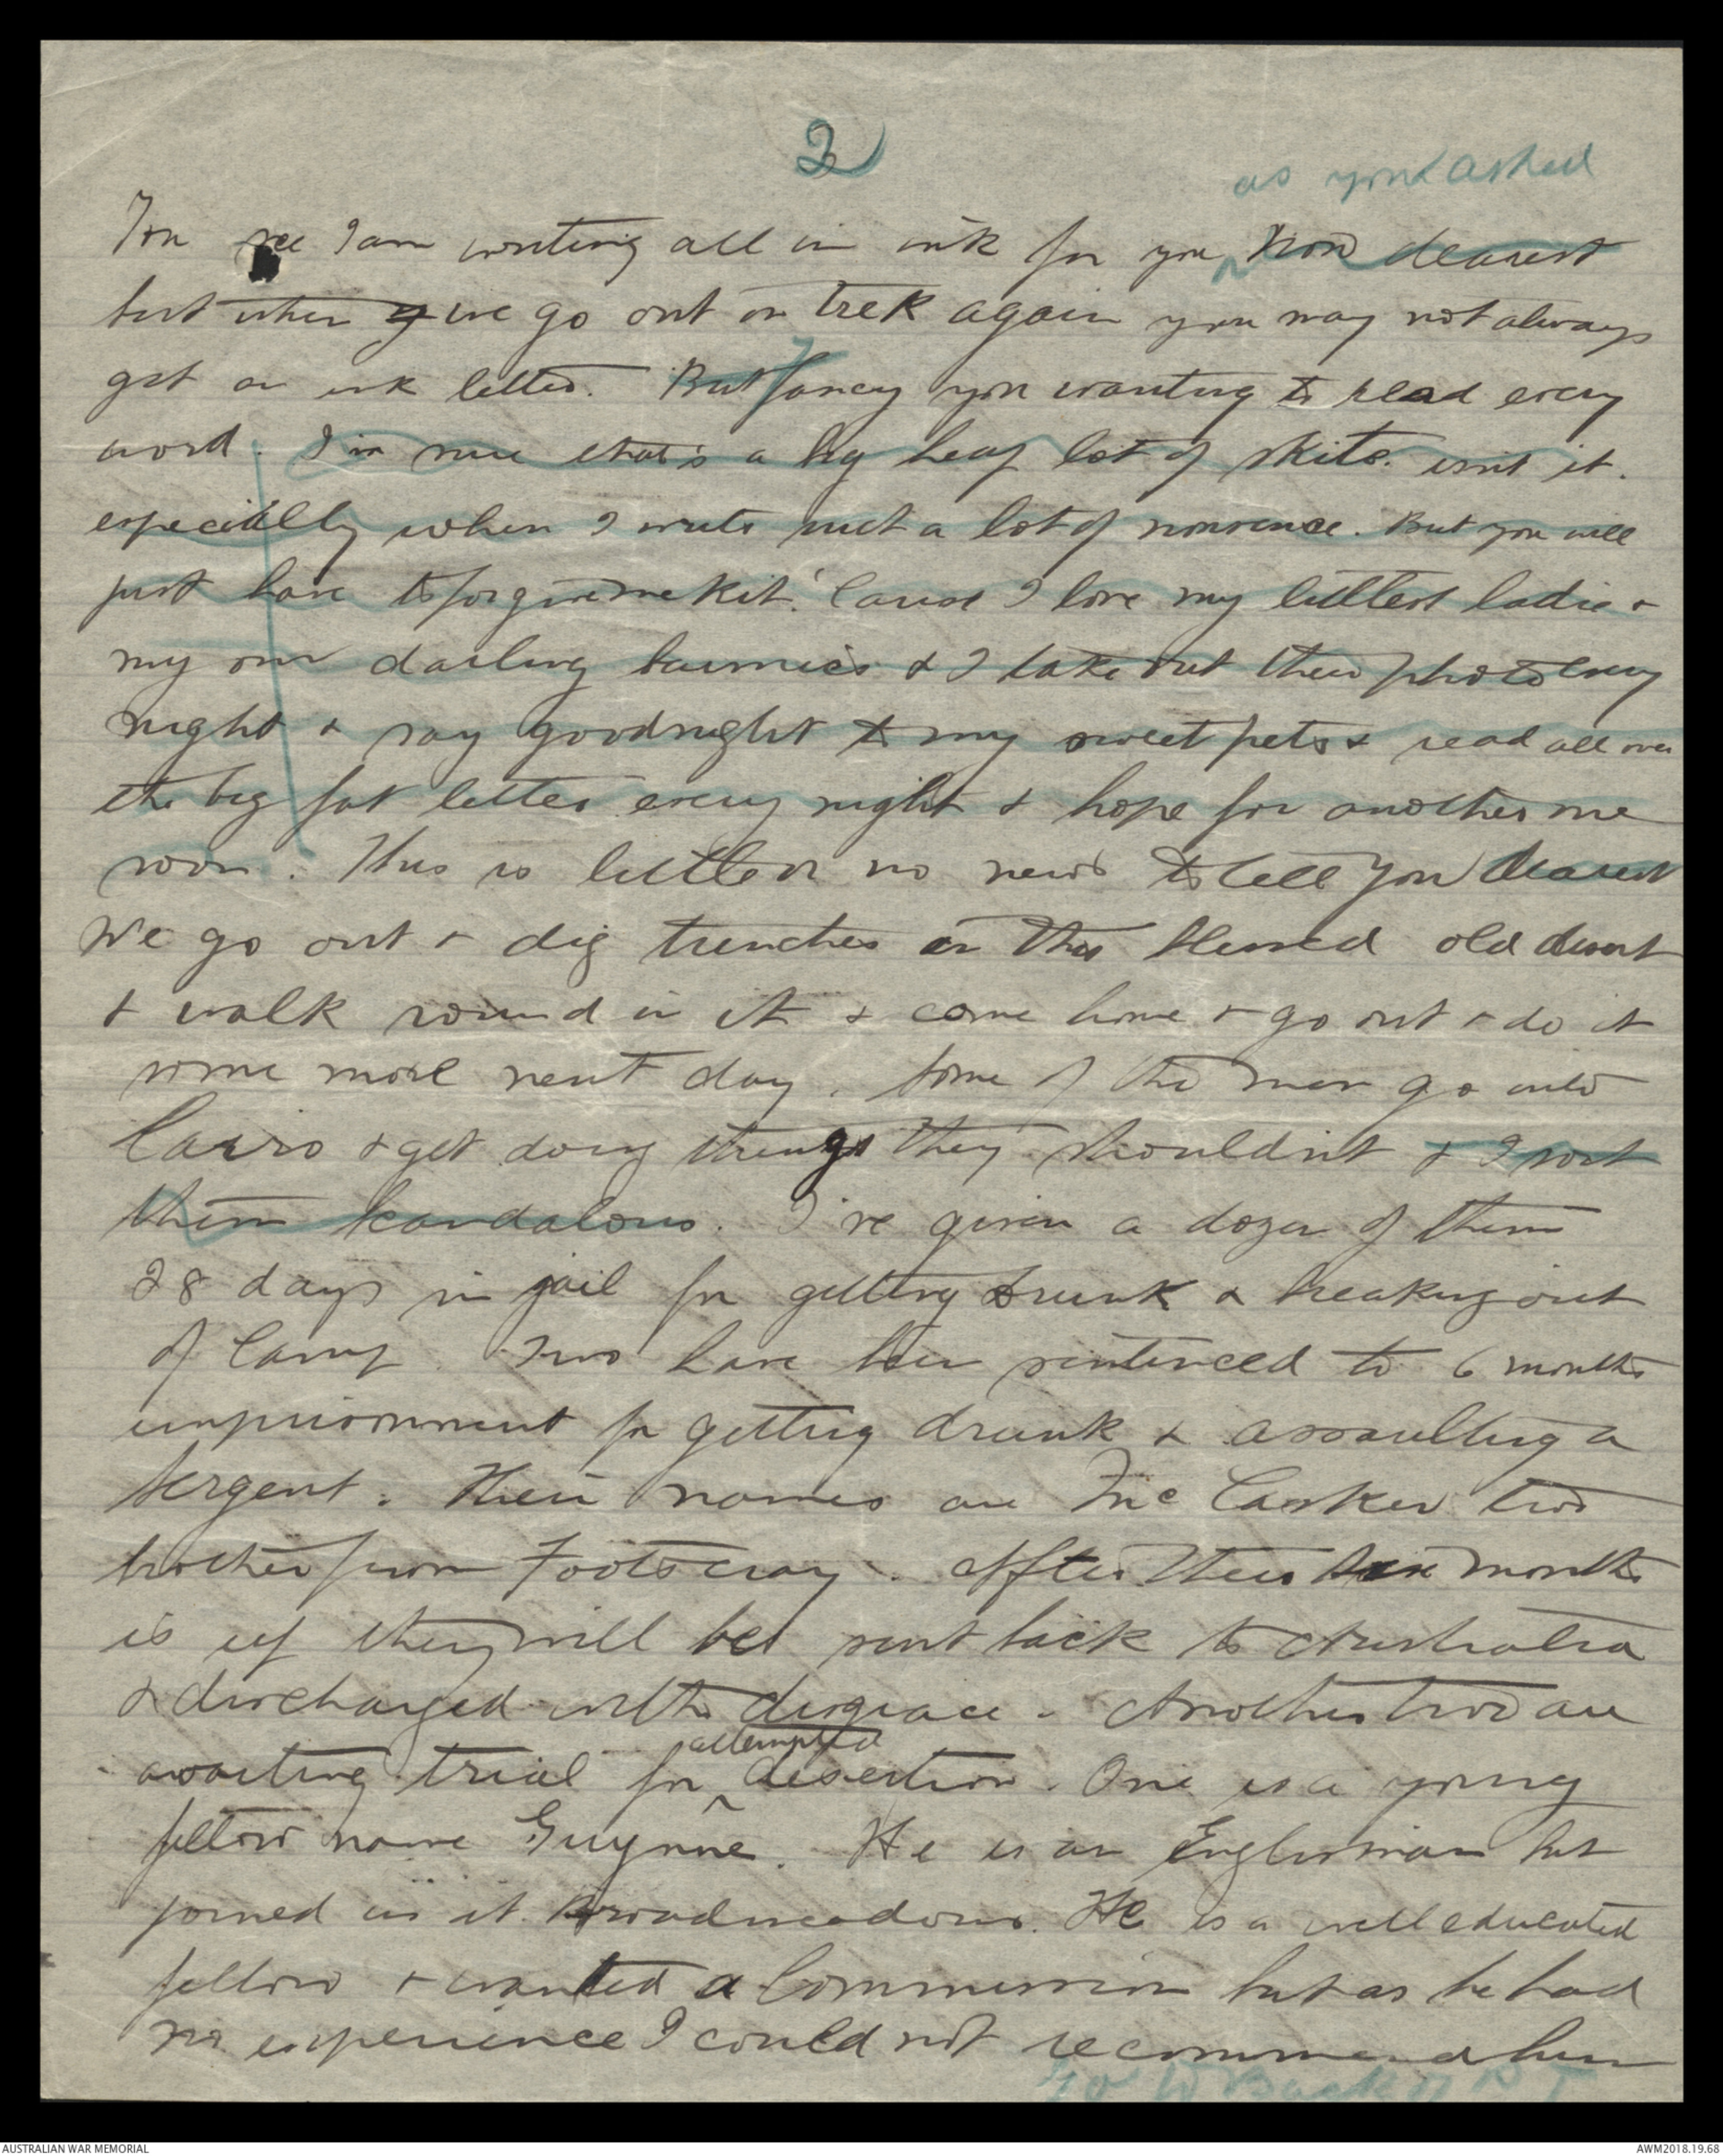 2
as you asked
You see I am writing all in ink for you now dearest
but when we go out on trek again you may not always
get an ink letter. But fancy you wanting to read every
word. I'm sure that's a big heap lot of skite. isnt it.
especially when I write such a lot of nonsence. But you will
just have to forgive me kit. 'Cause I love my littlest ladie &
my own darling bairnies & I take out their photo every
night & say goodnight to my sweet pets & read all over
the big fat letter every night & hope for another one
soon. Thus is little or no news to tell you dearest
We go out & dig trenches in this blessed old desert
& walk round in it & come home & go out & do it
some more next day. Some of the men go into
Cairo & get doing things they shouldn't & I roast
them skandalous. I've given a dozen of them
28 days in jail for getting drunk & breaking out
of Camp. Two have been sentenced to 6 months
imprisonment for getting drunk & assaulting a
Sergent. Their names are McCasker two
brothers from Footscray. After their six months
is up they will be sent back to Australia
& discharged with disgrace. Another two are
attempted
awaiting trial for desertion. One is a young
fellow name Guynne. He is an Englishman but
joined us at Broadmeadows. He is a well educated
fellow & wanted a Commission but as he had
no experience I could not recommend him
AUSTRALIAN WAR MEMORIAL
AWM2018.19.68